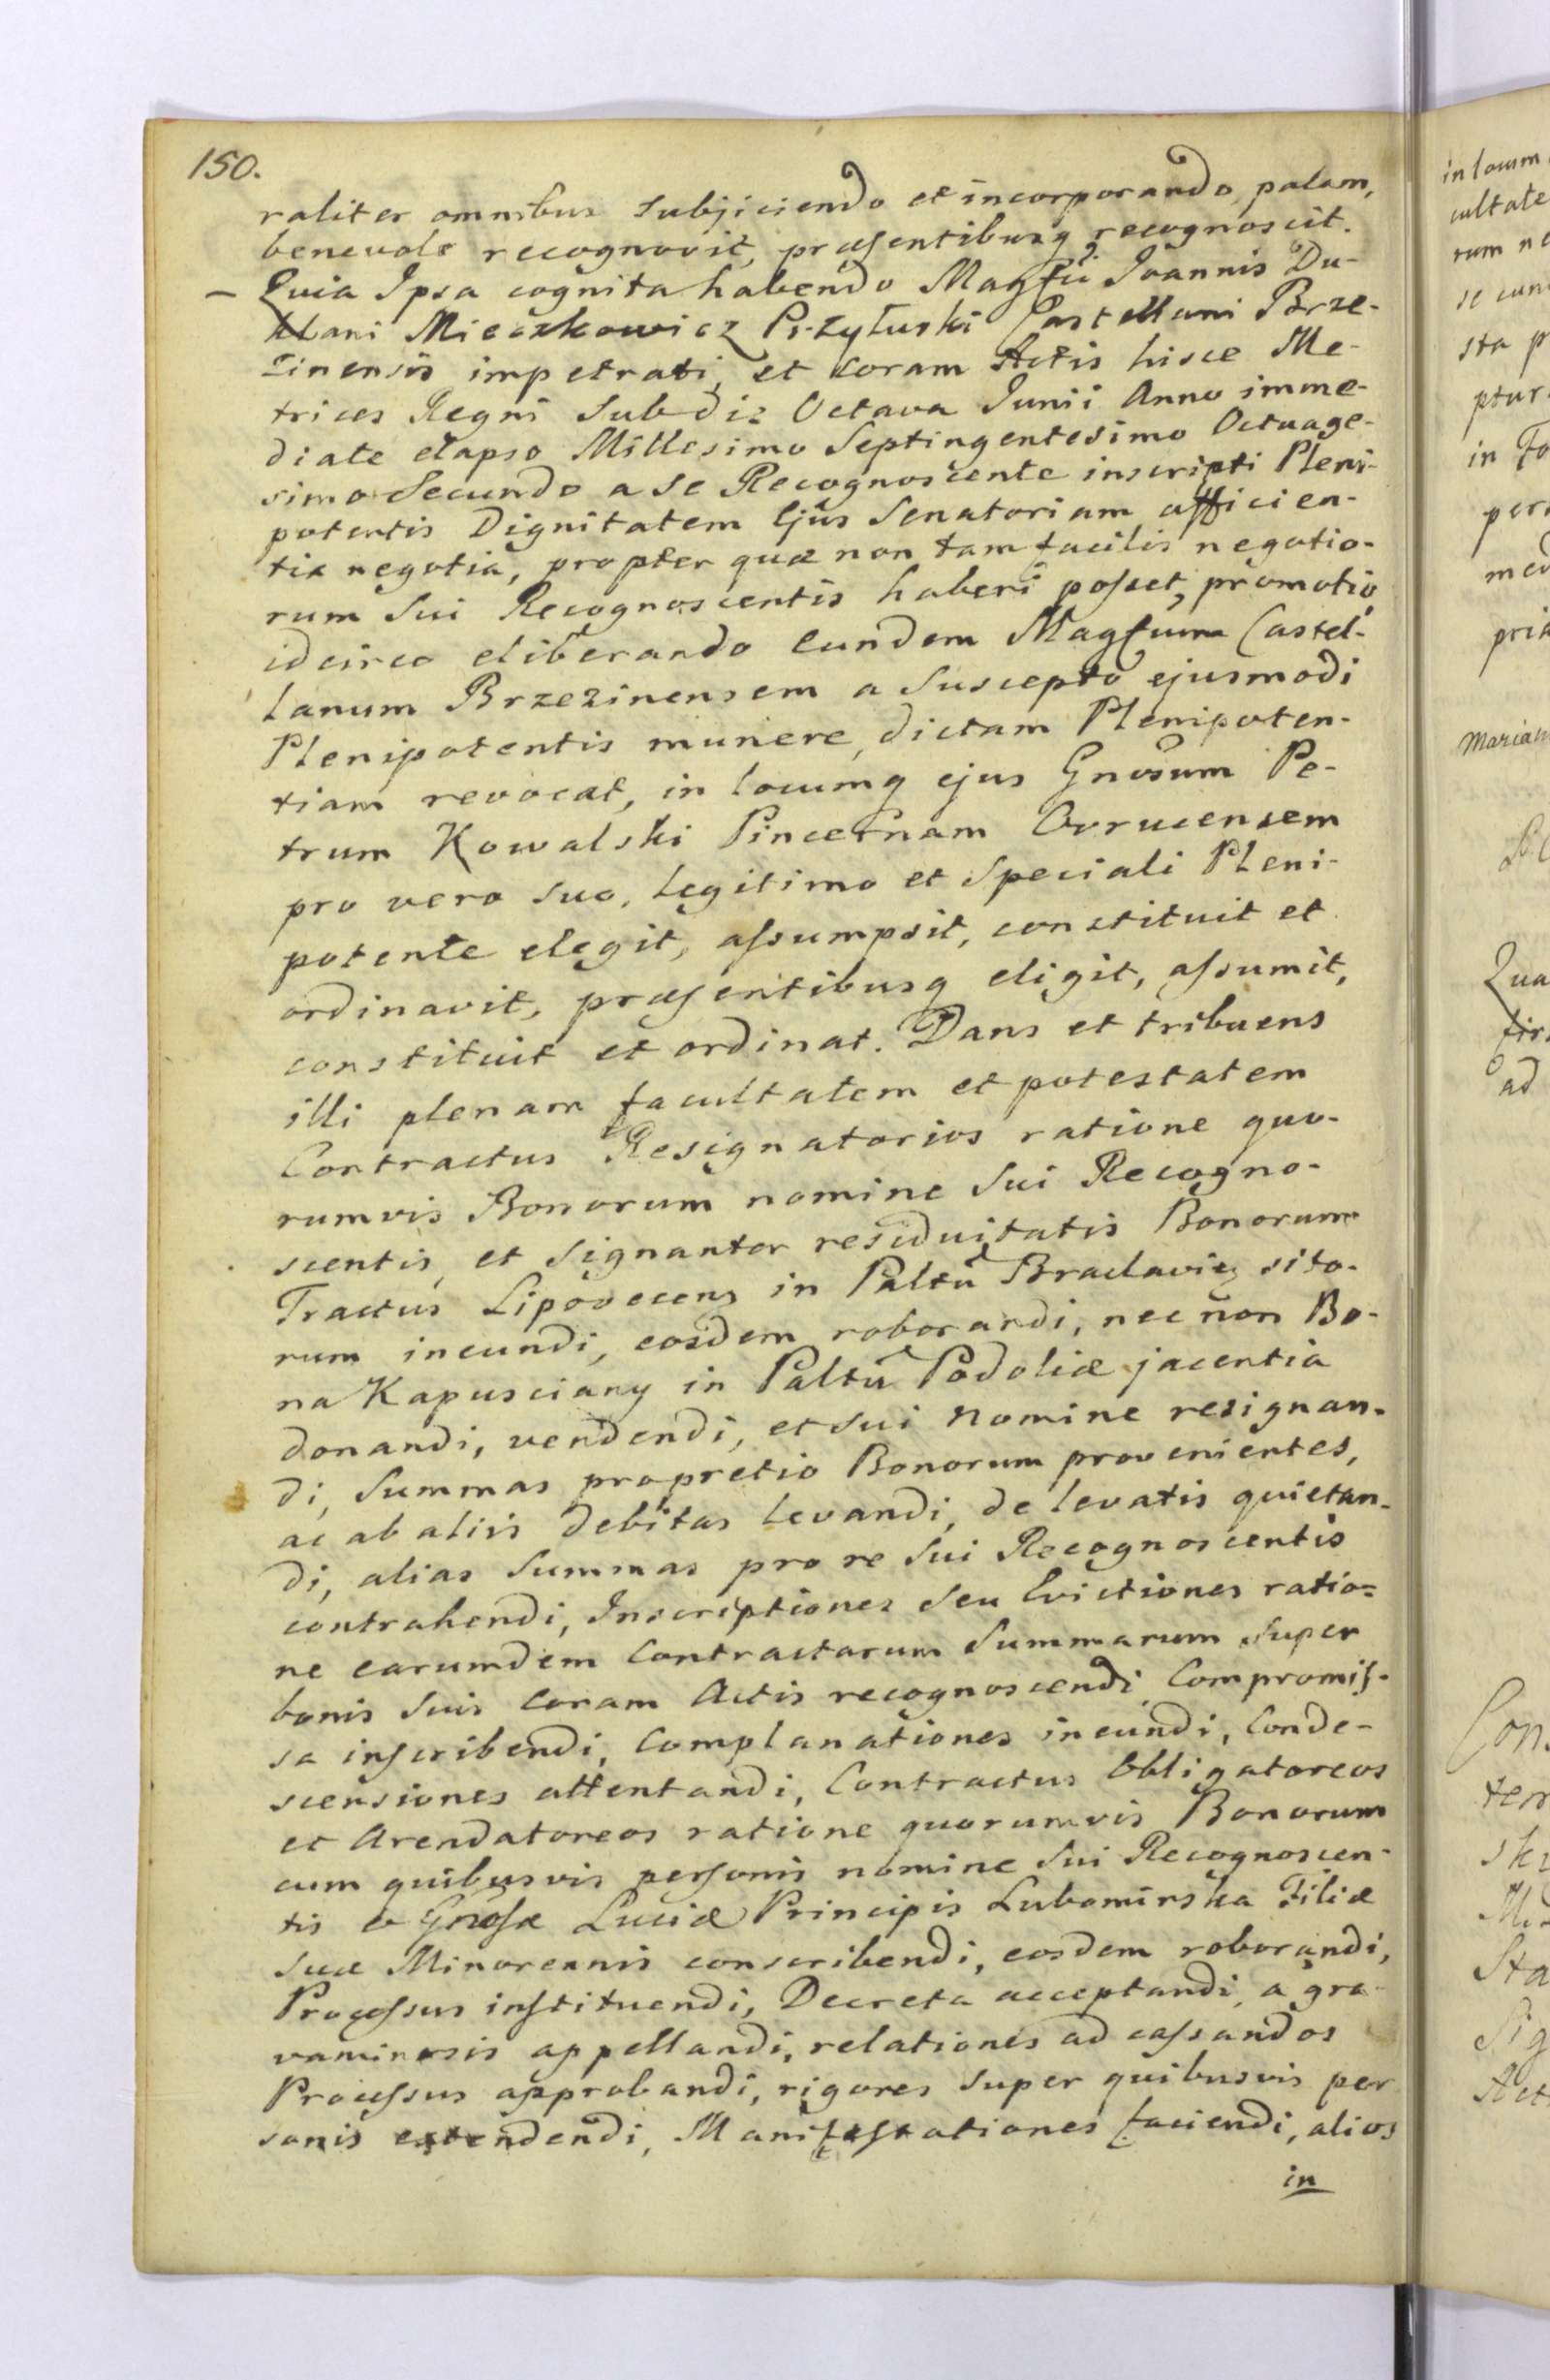 150.
raliter omnibus subjiciendo et incorporando, palam,
benevole recognovit, præsentibusq recognoscit.
– Quia Ipsa cognita habendo Magfci Joannis Du-
klani Mieczkowicz Przyłuski Castellani Brze-
zinensis impetrati, et coram Actis hisce Me-
trices Regni sub die Octava Junii Anno imme-
diate elapso Millesimo Septingentesimo Octuage-
simo Secundo a se Recognoscente inscripti Pleni-
potentis Dignitatem Ejus Senatoriam afficien-
tia negotia, propter quæ non tam facilis negotio-
rum sui Recognoscentis haberi posset, promotio
idcirco eliberando Eundem Magfcum Castel-
lanum Brzezinensem a suscepto ejusmodi
Plenipotentis munere, dictam Plenipoten-
tiam revocat, in locumq ejus Gnosum Pe-
trum Kowalski Pincernam Owrucensem
pro vero suo, legitimo et speciali Pleni-
potente elegit, assumpsit, constituit et
ordinavit, præsentibusq eligit, assumit,
constituit et ordinat. Dans et tribuens
illi plenam facultatem et potestatem
Contractus Resignatorios ratione quo-
rumvis Bonorum nomine sui Recogno-
scentis, et signanter residuitatis Bonorum
Tractus Lipovecens in Paltu Braclaviæ sito-
rum ineundi, eosdem roborandi, nec non Bo-
na Kapusciany in Paltu Podoliæ jacentia
donandi, vendendi, et sui nomine resignan-
di, summas propretio Bonorum provenientes,
ac ab aliis debitas levandi, de levatis quietan-
di, alias summas pro re sui Recognoscentis
contrahendi, Inscriptiones seu Evictiones ratio=
ne earumdem Contractarum Summarum super
bonis suis coram Actis recognoscendi, Compromis-
sa inscribendi, Complanationes ineundi, Conde-
scensiones attentandi, Contractus Obligatoreos
et Arendatoreos ratione quorumvis Bonorum
cum quibusvis personis nomine sui Recognoscen-
tis & Gnosæ Luciæ Principis Lubomirska Filiæ
suæ Minorennis conscribendi, eosdem roborandi,
Processus instituendi, Decreta acceptandi, a gra-
vaminosis appellandi, relationes ad cassandos
Processus approbandi, rigores super quibusvis per
sonis extendendi, Manifestationes faciendi, alios
in